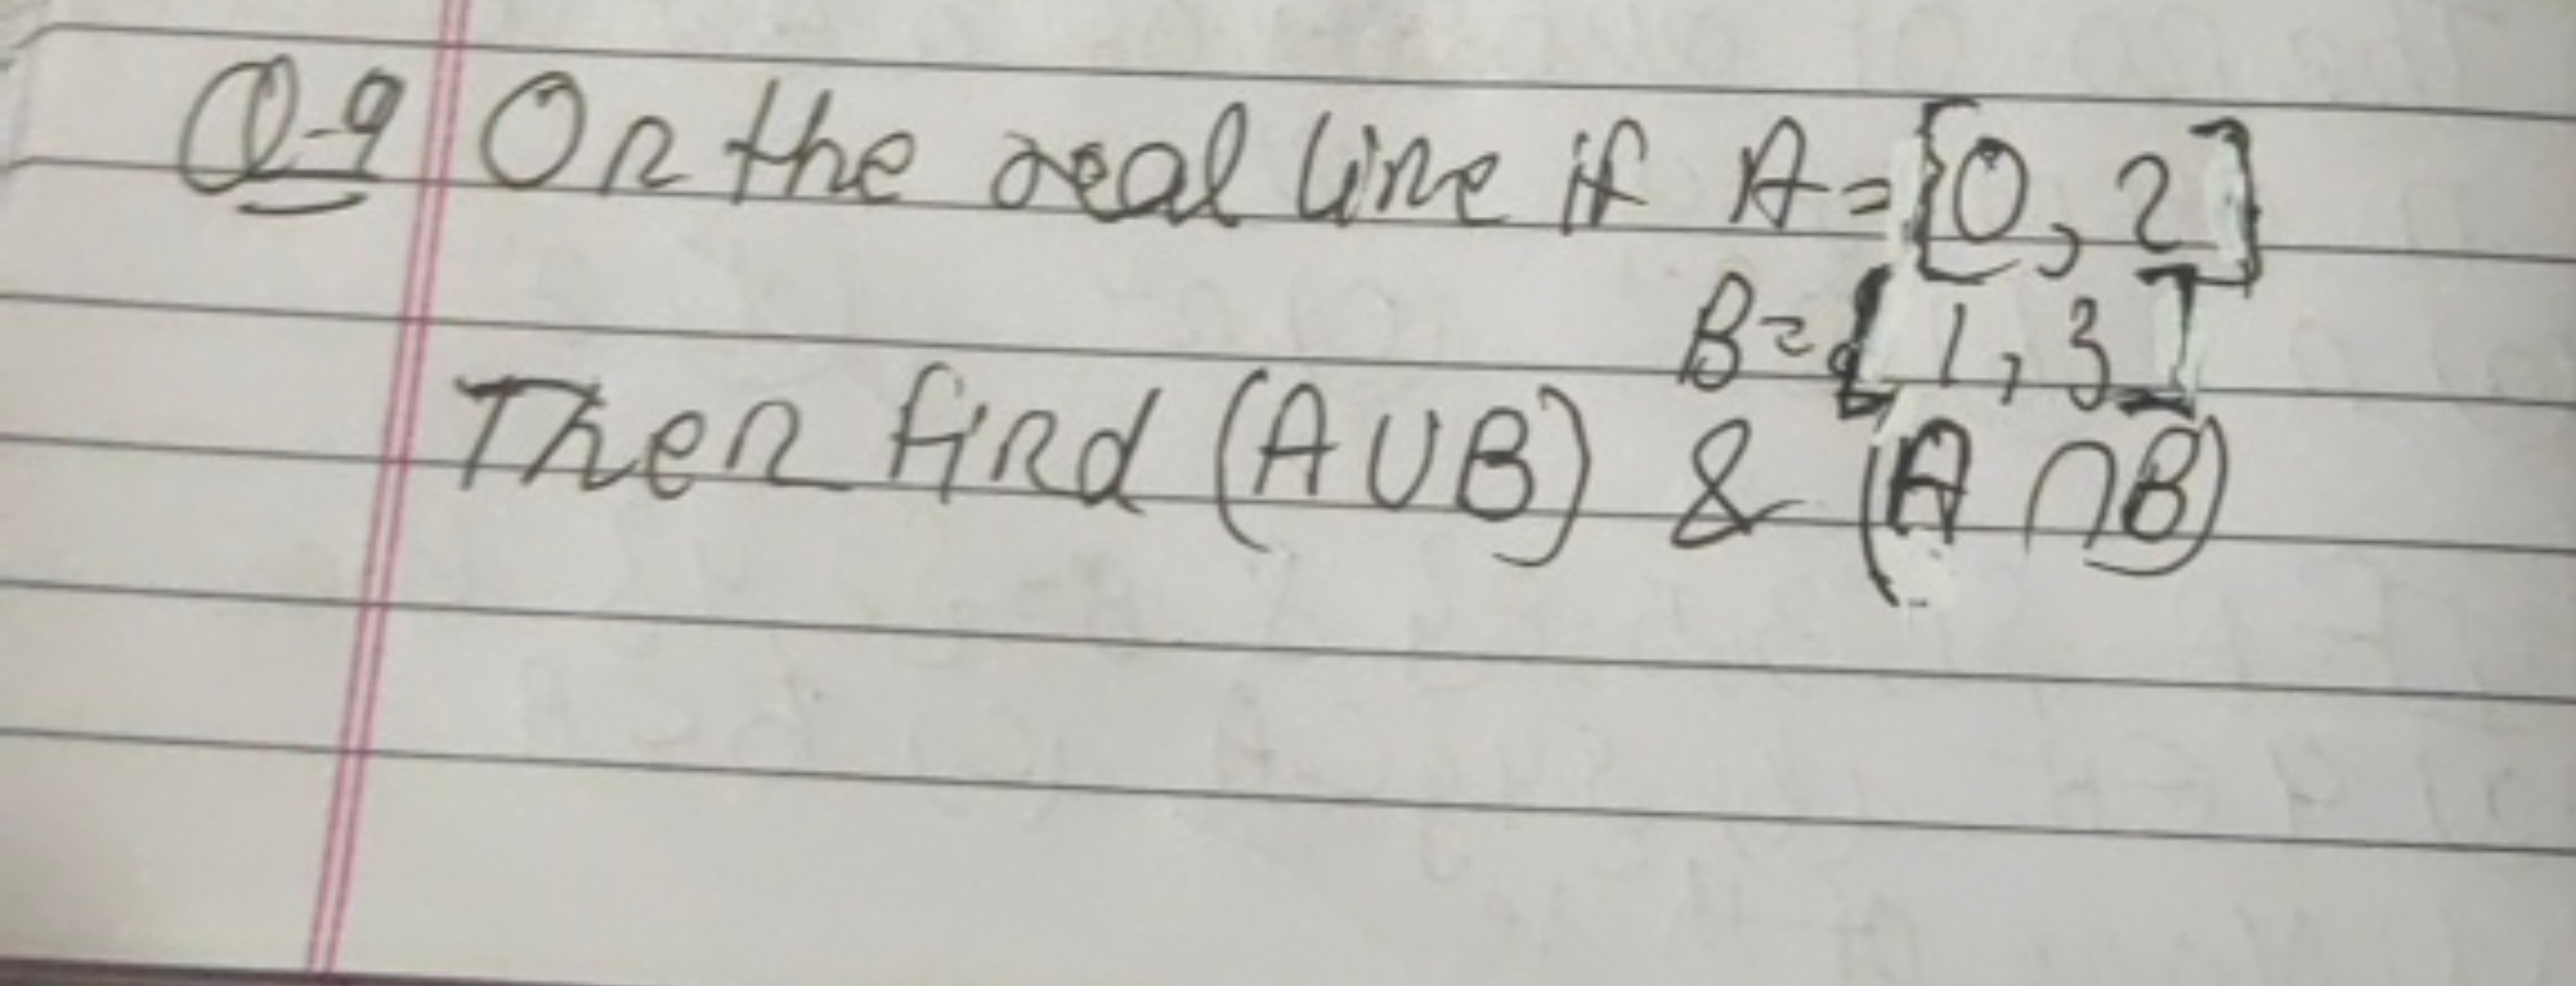 Q-9 On the real line if A=[0, 2]
B=[1, 3]
Then find (A∪B) & (A ∩B)